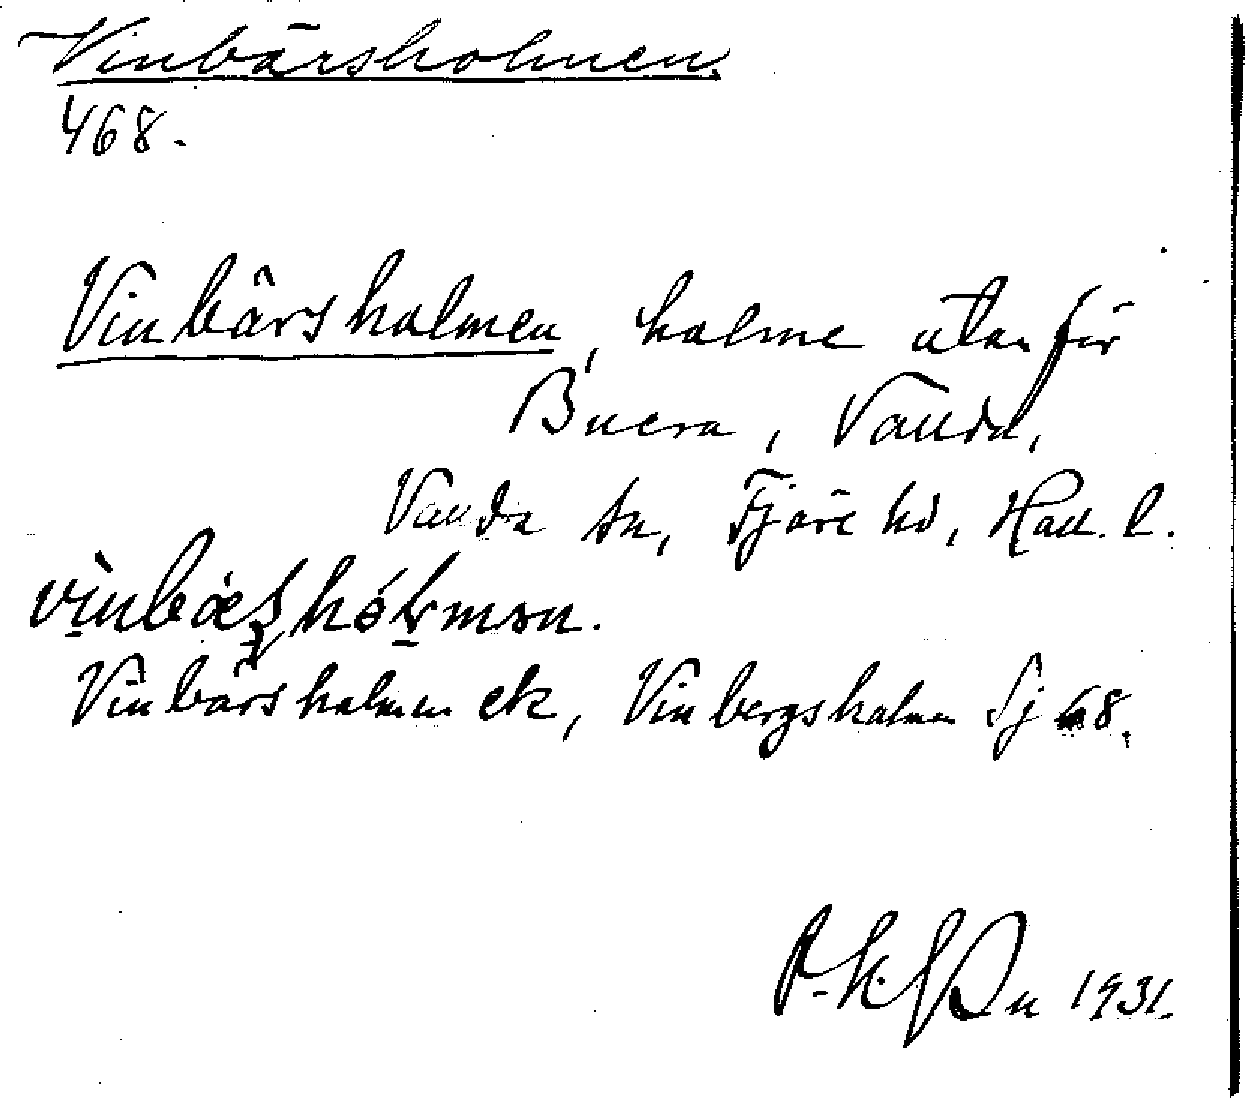 Vinbärsholmen.
468.
Vinbärsholmen, holme utanför
Buera, Vallda,
Vallda sn, Fjäre hd, Hall. l.
Vinbärsholmen ek, Vinbergsholmen Sj 68.
1931.